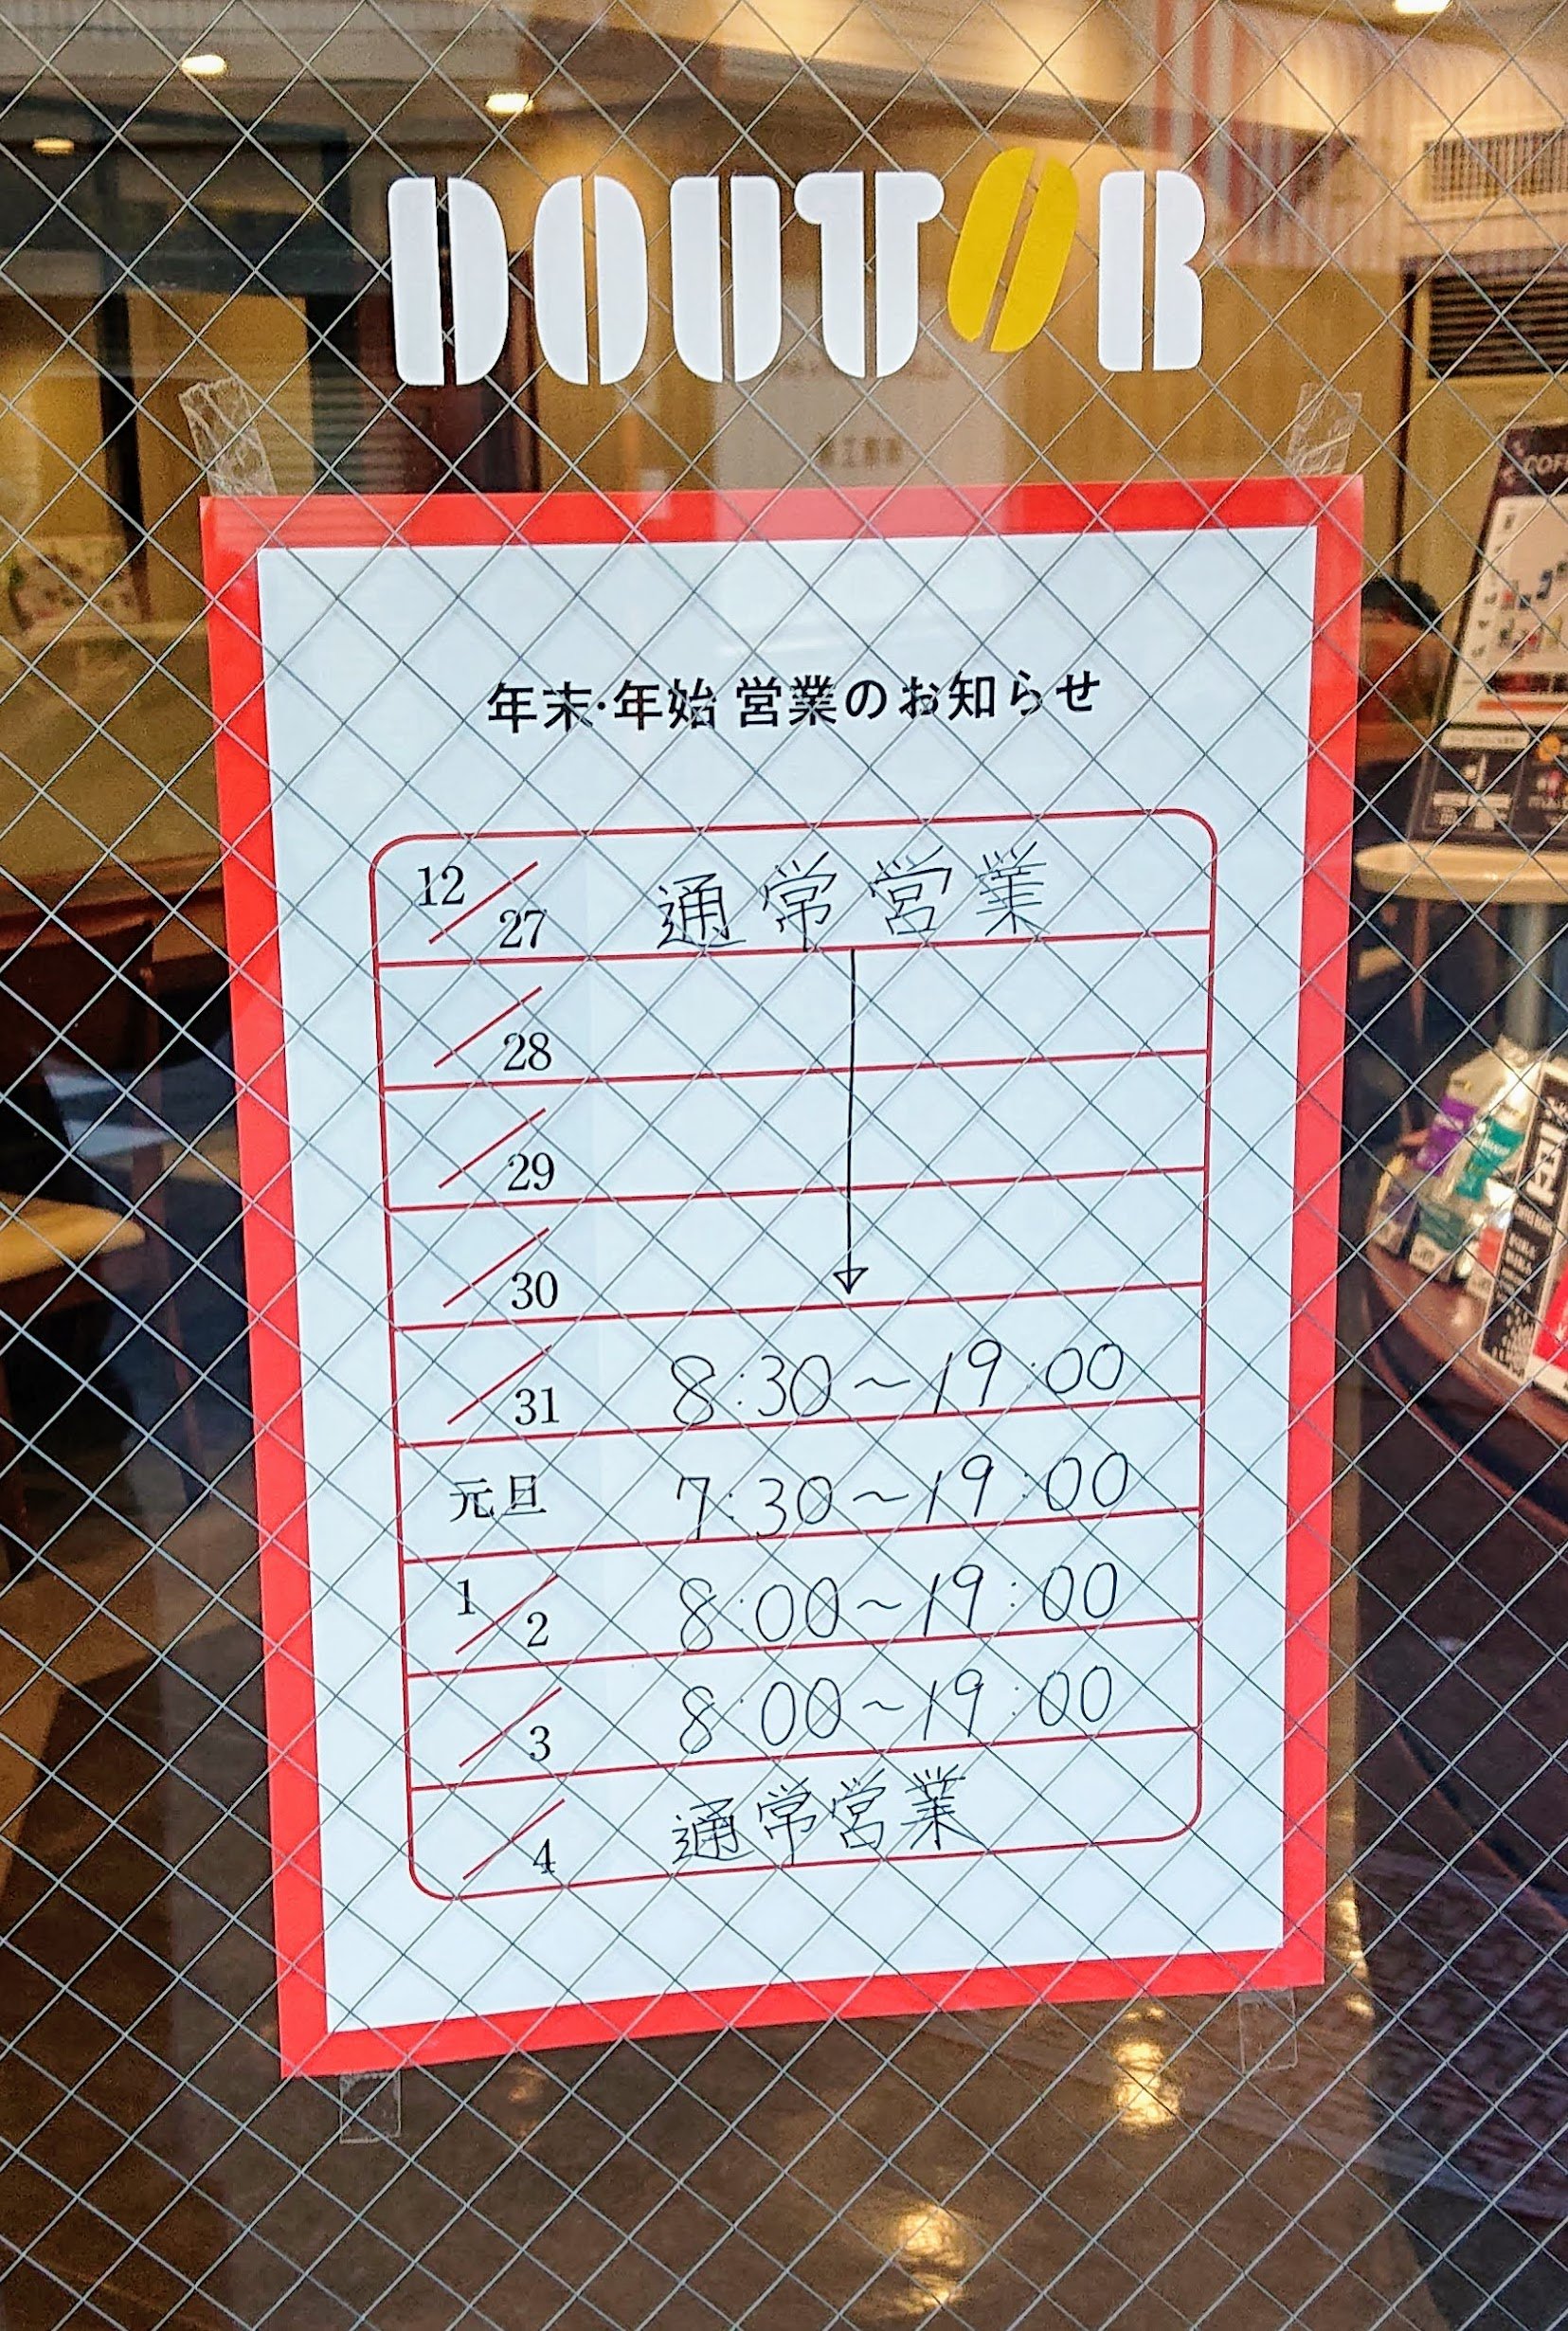 DOUTOR
年末・年始 営業のお知らせ
12/27 通常営業
/28
/29
/30
/31 8:30〜19:00
元旦 7:30〜19:00
1/2 8:00〜19:00
/3 8:00〜19:00
/4 通常営業